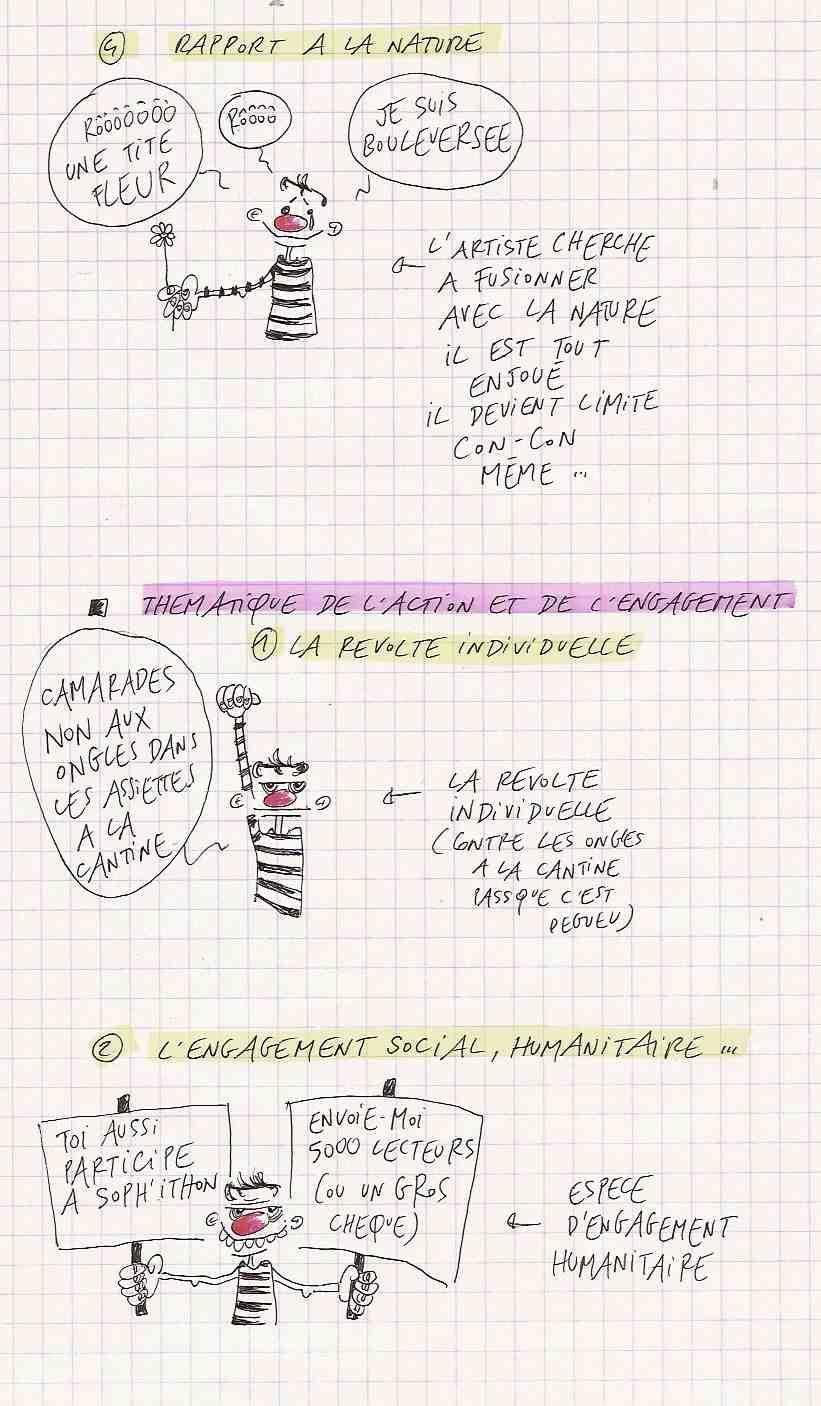 ④ RAPPORT A LA NATURE
RÔÔÔÔÔÔÔ
UNE TITE
FLEUR
RÔÔÔÔ
JE SUIS
BOULEVERSEE
L'ARTISTE CHERCHE
A FUSIONNER
AVEC LA NATURE
IL EST TOUT
ENJOUÉ
IL DEVIENT LIMITE
CON-CON
MÊME ...
THEMATIQUE DE L'ACTION ET DE L'ENGAGEMENT
① LA REVOLTE INDIVIDUELLE
CAMARADES
NON AUX
ONGLES DANS
LES ASSIETTES
A LA
CANTINE
LA REVOLTE
INDIVIDUELLE
(CONTRE LES ONGLES
A LA CANTINE
PASSQUE C'EST
DEGUEU)
② L'ENGAGEMENT SOCIAL, HUMANITAIRE ...
TOI AUSSI
PARTICIPE
A SOPH'ITHON
ENVOIE-MOI
5000 LECTEURS
(OU UN GROS
CHEQUE)
ESPECE
D'ENGAGEMENT
HUMANITAIRE